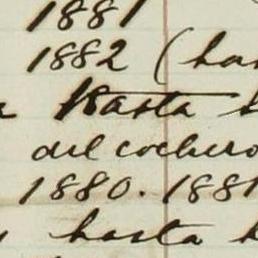 1881
1882 (has
Hasta
del cochero
1880. 1881
hasta